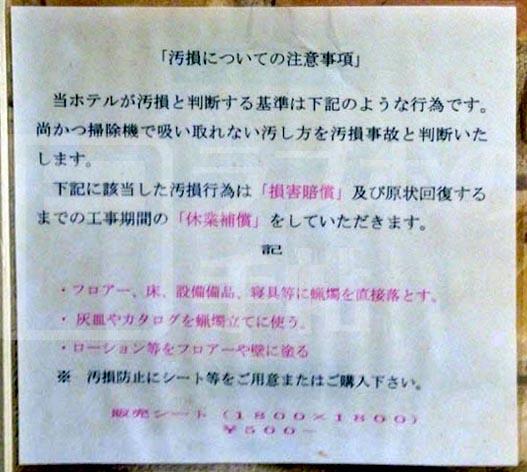 「汚損についての注意事項」
当ホテルが汚損と判断する基準は下記のような行為です。
尚かつ掃除機で吸い取れない汚し方を汚損事故と判断いた
します。
下記に該当した汚損行為は「損害賠償」及び原状回復する
までの工事期間の「休業補償」をしていただきます。
記
・フロアー、床、設備備品、寝具等に蝋燭を直接落とす。
・灰皿やカタログを蝋燭立てに使う。
・ローション等をフロアーや壁に塗る
※ 汚損防止にシート等をご用意またはご購入下さい。
販売シート（1800×1800）
￥500－